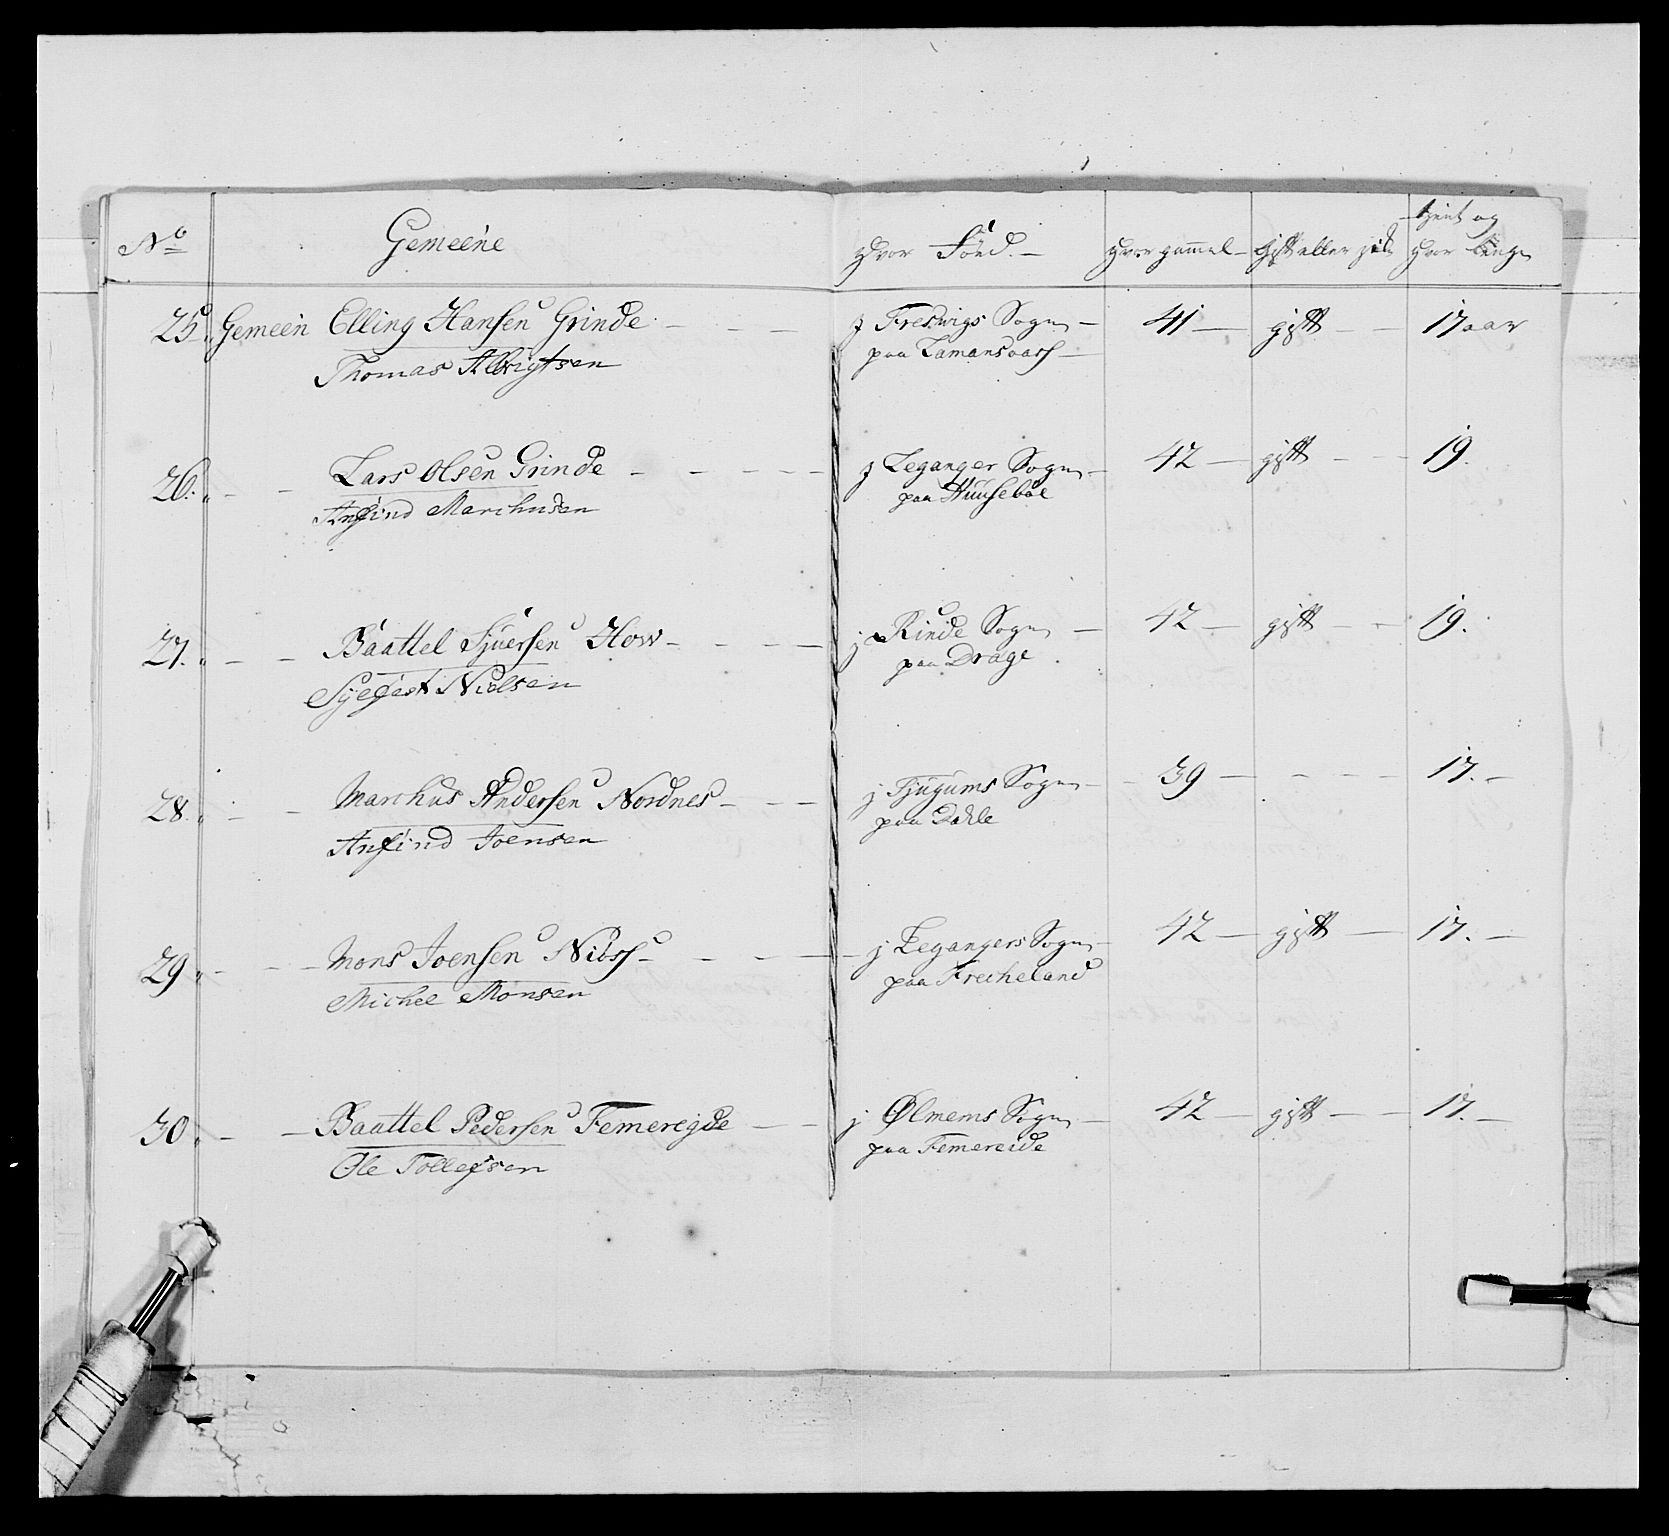 No Gemeene hvor Föed. hvor gammel gift eller ei tient og hvor lenge
25. Gemeen Elling Hansen Grinde j Freswigs Sogn 41 gift 17 aar
Thomas Albrigtsen paa
26. Lars Olsen Grinde j Leganger Sogn 42 gift 19.
Anfind Marchusen paa Huuseböe
27. Baattel Sjuersen How j Rinde Sogn 42 gift 19.
Nielsen paa Drage
28. Marchus Andersen Nordnes j Tjugums Sogn 39 17.
Anfind Joensen paa Dahle
29. Mons Joensen j Legangers Sogn 42 gift 17.
Michel Monsen paa Frecheland
30. Baattel Pedersen Femereigde j Ølmems Sogn 42 gift 17.
Ole Tollefsen paa Femereide